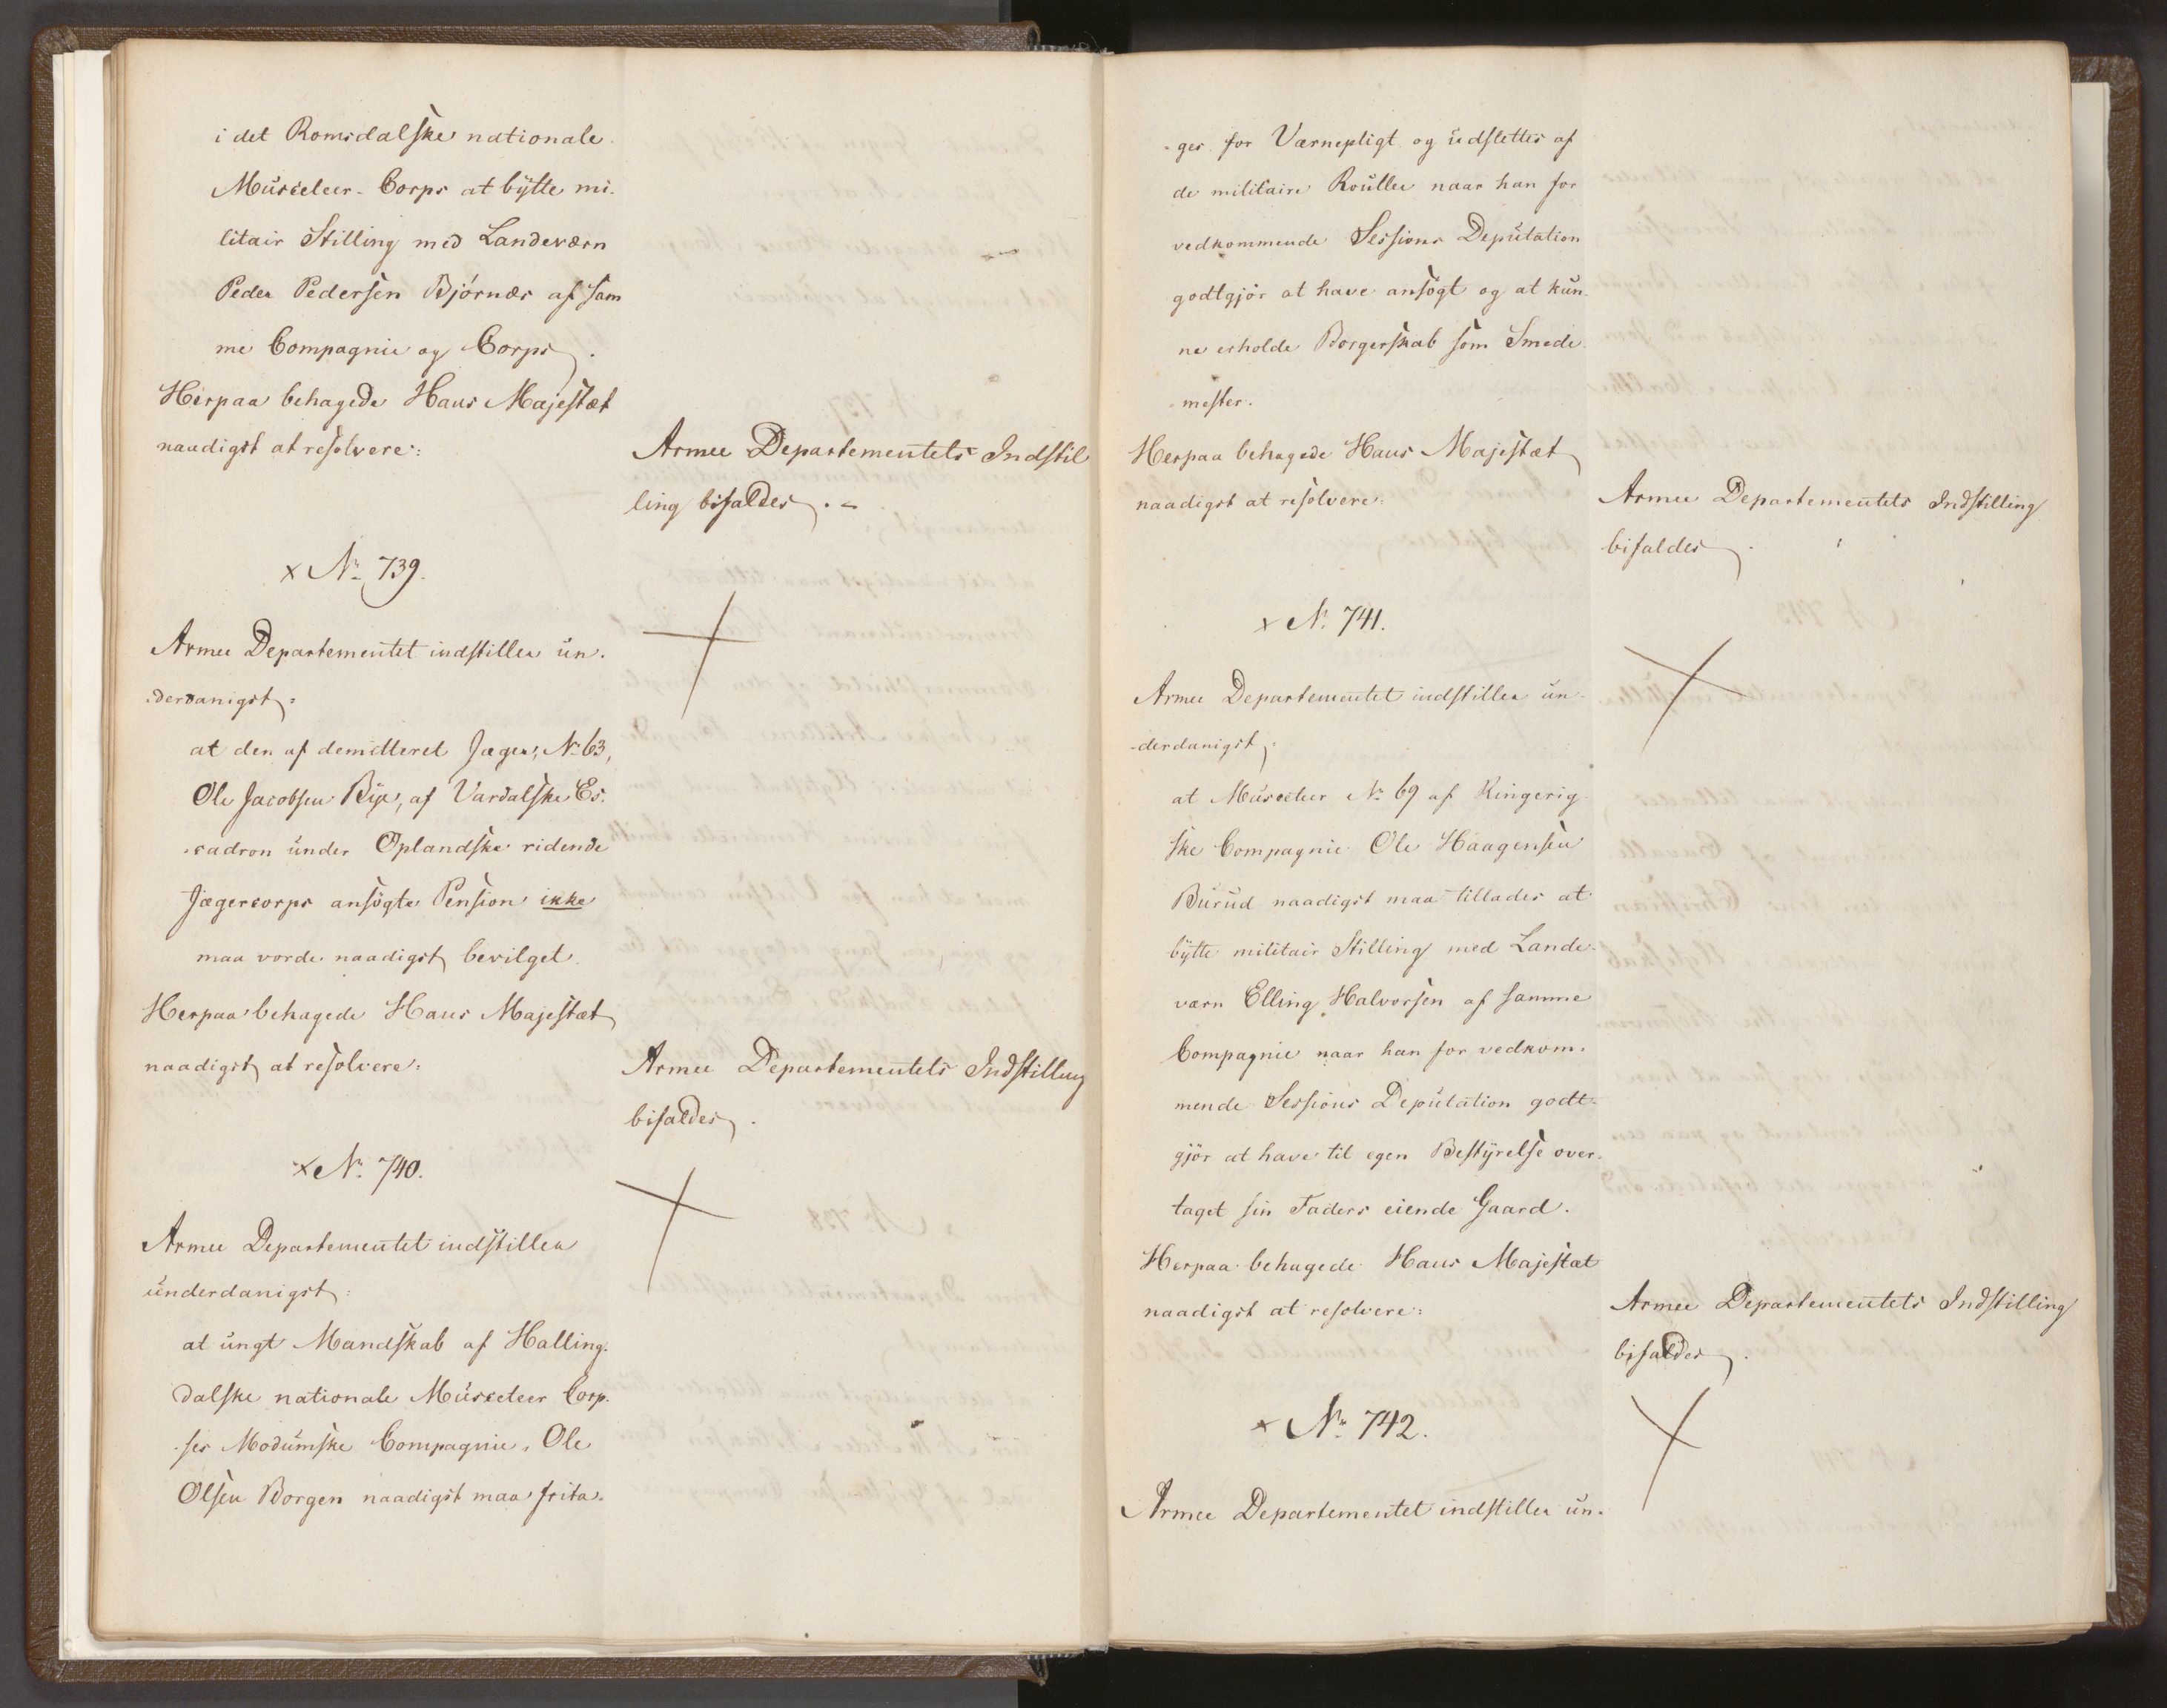 i det Romsdalske nationale
Musceteer-Corps at bytte mi-
litair Stilling med Landeværn
Peder Pedersen Bjørnæs af sam
me Compagnie og Corps.
Herpaa behagede Hans Majestæt
naadigst at resolvere:
Armee Departementets Indstil
ling bifaldes.
x No 739.
Armee Departementet indstiller un-
-derdanigst:
at den af demitteret Jæger, No 63,
Ole Jacobsen Bye, af Vardalske Es-
-cadron under Oplandske ridende
Jægercorps ansøgte Pension ikke
maa vorde naadigst bevilget.
Herpaa behagede Hans Majestæt
naadigst at resolvere:
Armee Departementets Indstilling
bifaldes.
x No 740.
Armee Departementet indstiller
underdanigst:
at ungt Mandskab af Halling-
dalske nationale Musceteer Corp-
-ses Modumske Compagnie, Ole
Olsen Borgen naadigst maa frita-
-ges for Værnepligt og udslettes af
de militaire Rouller naar han for
vedkommende Sessions Deputation
godtgjør at have ansøgt og at kun-
ne erholde Borgerskab som Smede-
-mester.
Herpaa behagede Hans Majestæt
naadigst at resolvere:
Armee Departementets Indstilling
bifaldes.
x No 741.
Armee Departementet indstiller un-
-derdanigst:
at Musceteer No 69 af Ringerig-
ske Compagnie Ole Haagensen
Burud naadigst maa tillades at
bytte militair Stilling med Lande-
værn Elling Halvorsen af samme
Compagnie naar han for vedkom-
mende Sessions Deputation godt-
gjør at have til egen Bestyrelse over-
taget sin Faders eiende Gaard.
Herpaa behagede Hans Majestæt
naadigst at resolvere:
Armee Departementets Indstilling
bifaldes.
x No 742.
Armee Departementet indstiller un-